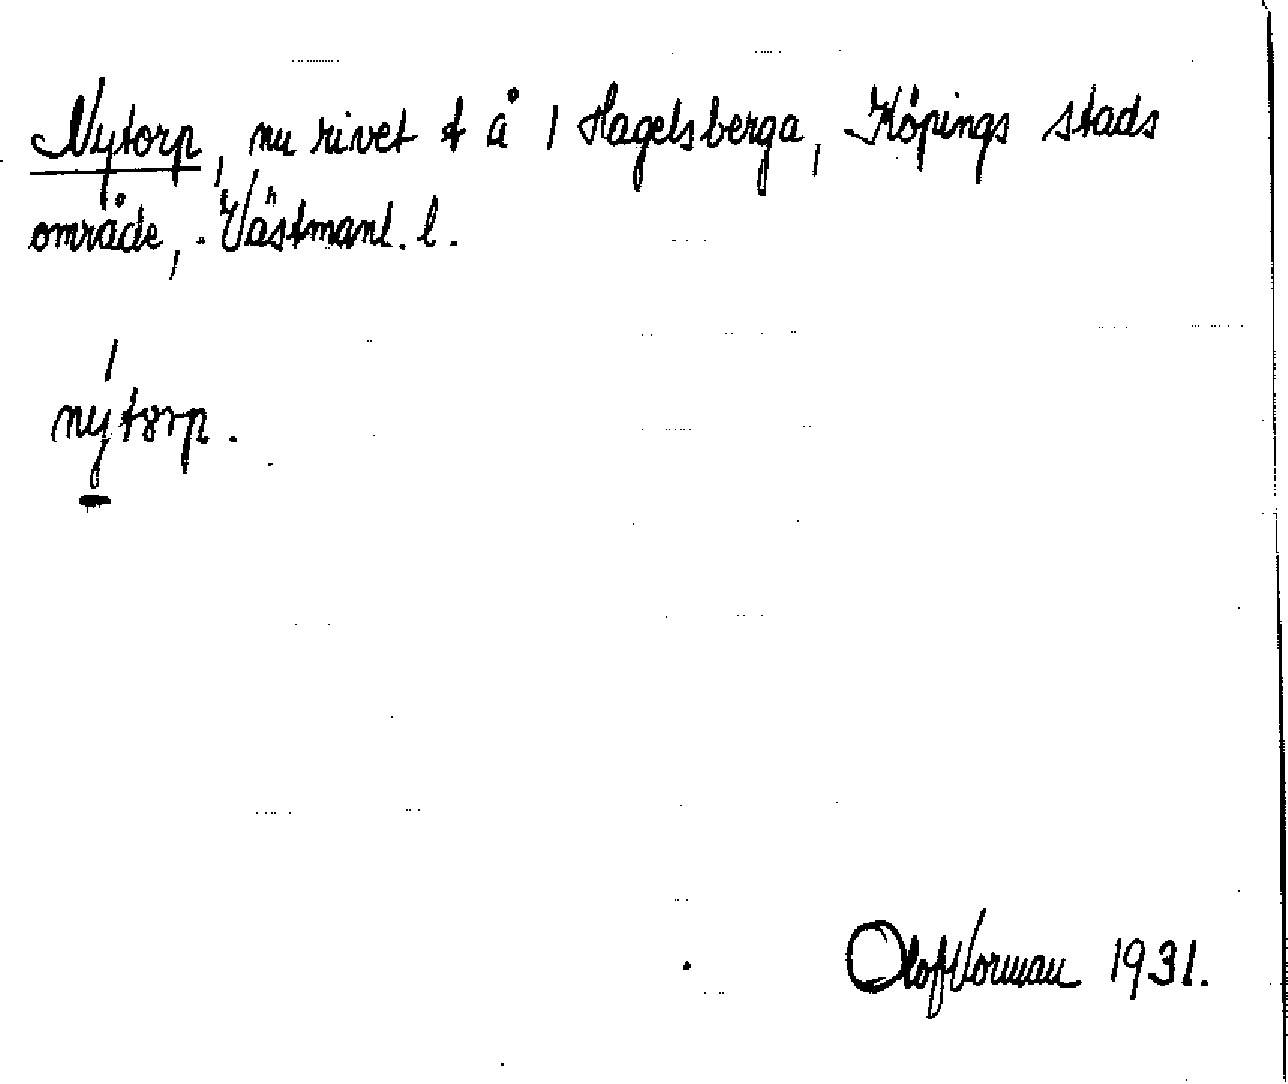 Nytorp, nu rivet t å 1 Hagelsberga, Köpings stads
område, Västmanl. l.
nytorp.
Olof Vorman 1931.